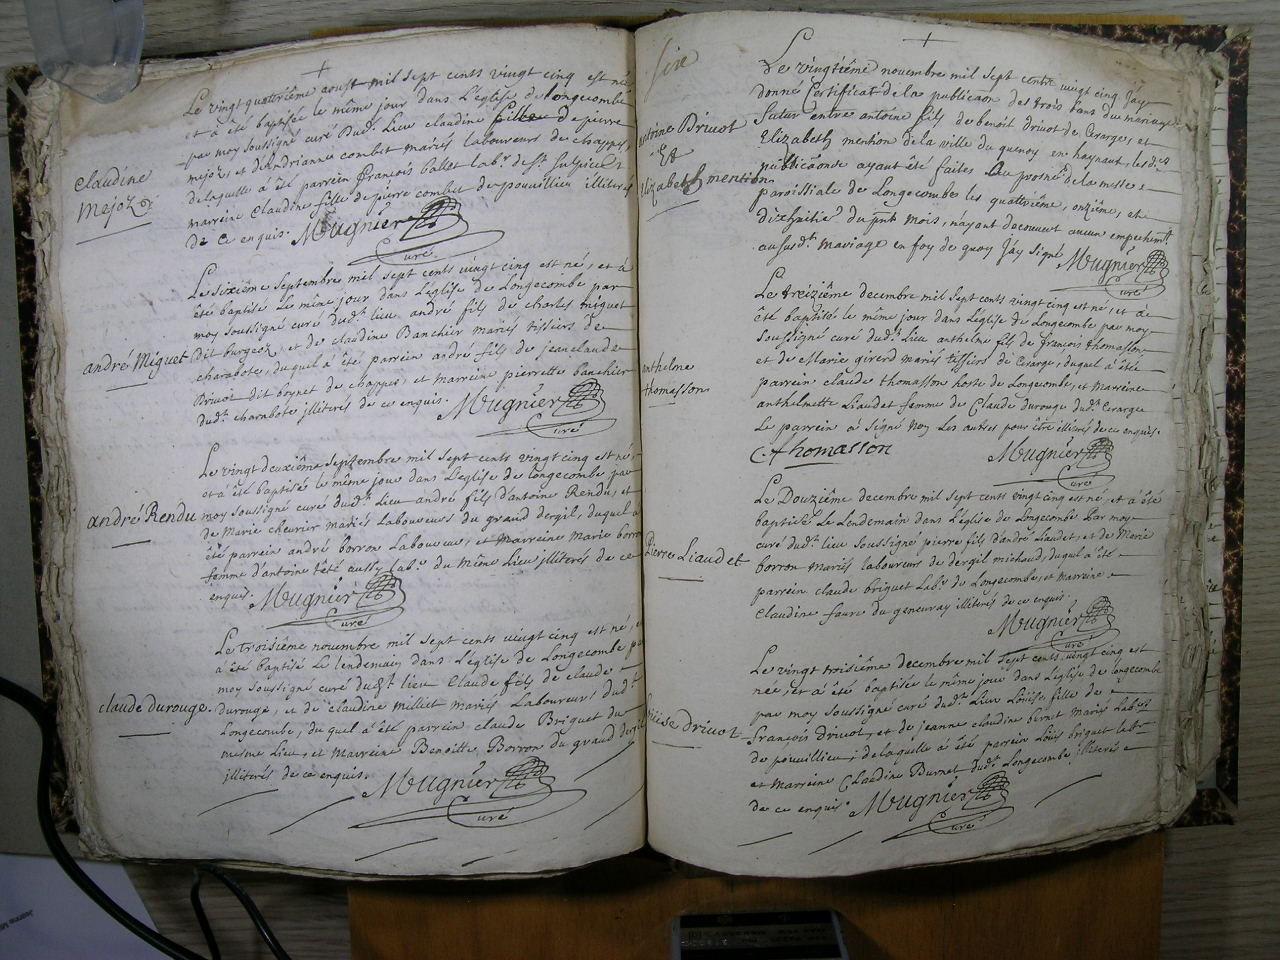 Le vingt quattriême aoust mil sept cents vingt cinq est née
et à été baptisée le même jour dans L'église de longecombe
par moy soussigné curé dud.t Lieu claudine fille de pierre
mejoz, et d'Andrianne combet mariés laboureurs de chappes
delaquelle à été parrein françois ballet lab.r de st Sulpice et
marreine Claudine fille de pierre combet de pouvillieu illiterés
de ce enquis. Mugnier
Curé
claudine
mejoz
Le sixiême septembre mil sept cents vingt cinq est né, et à
été baptisé Le même jour dans L'église de Longecombe par
moy soussigné curé dud.t lieu andré fils de charles miguet
dit burgeoz, et de claudine Banchier mariés tissiers de
charabote, duquel à été parrein andré fils de jeanclaude
Drivot dit boynet de chappes, et marreine pierrette banchier
dud.t charabote illiterés de ce enquis. Mugnier
Curé
andré Miguet
Le vingt deuxiême septembre mil sept cents vingt cinq est né,
et à été baptisé le même jour dans L'église de longecombe par
moy soussigné curé dud.t lieu andré fils d'antoine Rendu, et
de Marie chevrier mariés Laboureurs du grand dergil, duquel à
été parrein andré borron Laboureur, et marreine marie borron
femme d'antoine tété aussy lab.r du même Lieu illiterés de ce
enquis. Mugnier
Curé
andré Rendu
Le troisiême novembre mil sept cents vingt cinq est né, et
à été baptisé Le lendemain dans L'église de Longecombe par
moy soussigné curé dud.t lieu Claude fils de claude
durouge, et de claudine milliet mariés Laboureurs dud.t
Longecombe, duquel à été parrein claude Briguet du
mesme Lieu, et Marreine Benoitte Borron du grand dergil
illiterés de ce enquis. Mugnier
Curé
claude durouge.
Le vingtiême novembre mil sept cents vingt cinq j'ay
donné Certificat de la publicaon des trois bans du mariage
futur entre antoine fils de benoit drivot de Cerarge, et
Elizabeth mention de la ville du quenoy en haynaut, lesd.es
publicaons ayant été faites au prosne de la messe
parroissiale de Longecombes les quattriême, onziême, et
dixhuitie du pnt mois, n'ayant decouvert aucun empechem.t
au susd.t mariage en foy de quoy j'ay signé Mugnier
Curé
antoine Drivot
Et
Elizabeth mention
Le treiziême decembre mil sept cents vingt cinq est né, et a
été baptisé le même jour dans L'église de Longecombe par moy
soussigné curé dud.t Lieu anthelme fils de françois thomasson
et de Marie girerd mariés tissiers de Cerarge, duquel à été
parrein claude thomasson hoste de Longecombe, et marreine
anthelmette Liaudet femme de Claude durouge dud.t Cerarge
Le parrein à signé non Les autres pour être illiterés de ce enquis.
C. thomasson Mugnier
Curé
anthelme
thomasson
Le Douziême decembre mil sept cents vingt cinq est né, et à été
baptisé Le Lendemain dans L'église de Longecombe Par moy
curé dud.t lieu soussigné pierre fils d'andré Liaudet, et de Marie
borron mariés laboureurs de dergil michaud, duquel à été
parrein claude briguet Lab.r de Longecombe, et marreine
Claudine favre du genevray illiterés de ce enquis.
Mugnier
Curé
Pierre Liaudet
Le vingt troisiême decembre mil sept cents vingt cinq est
née, et à été baptisée le même jour dans L'église de Longecombe
par moy soussigné curé dud.t Lieu Loüise fille de
françois Drivot, et de jeanne claudine burnet mariés Lab.rs
de pouvillieu, delaquelle à été parrein Loüis briguet lab.r
et marreine Claudine Burnet dud.t Longecombe illiterés
de ce enquis. Mugnier
Curé
Loüise drivot